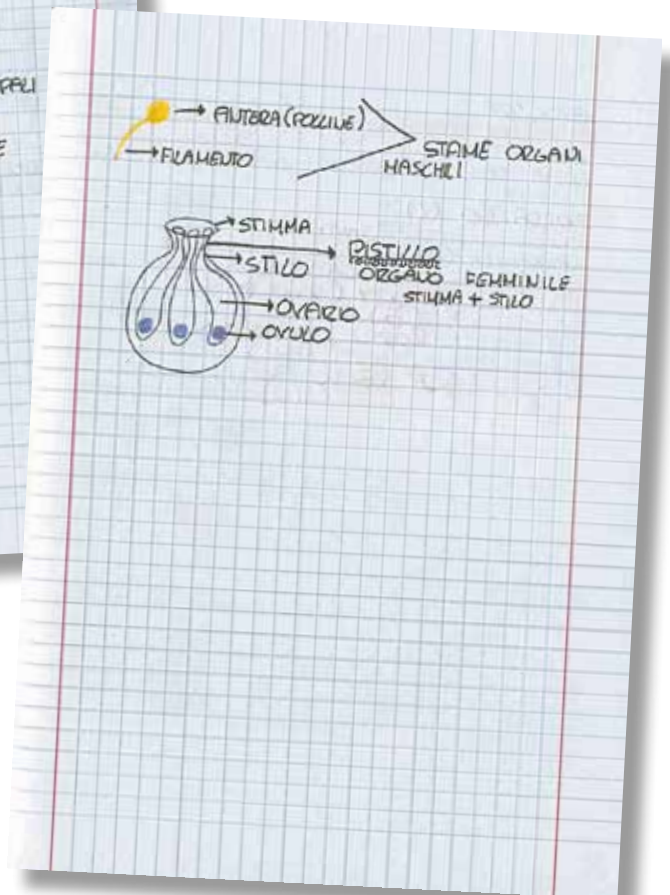 ANTERA (POLLINE)
FILAMENTO
STAME ORGANI
MASCHILI
STIMMA
STILO
PISTILLO
ORGANO FEMMINILE
STIMMA + STILO
OVARIO
OVULO